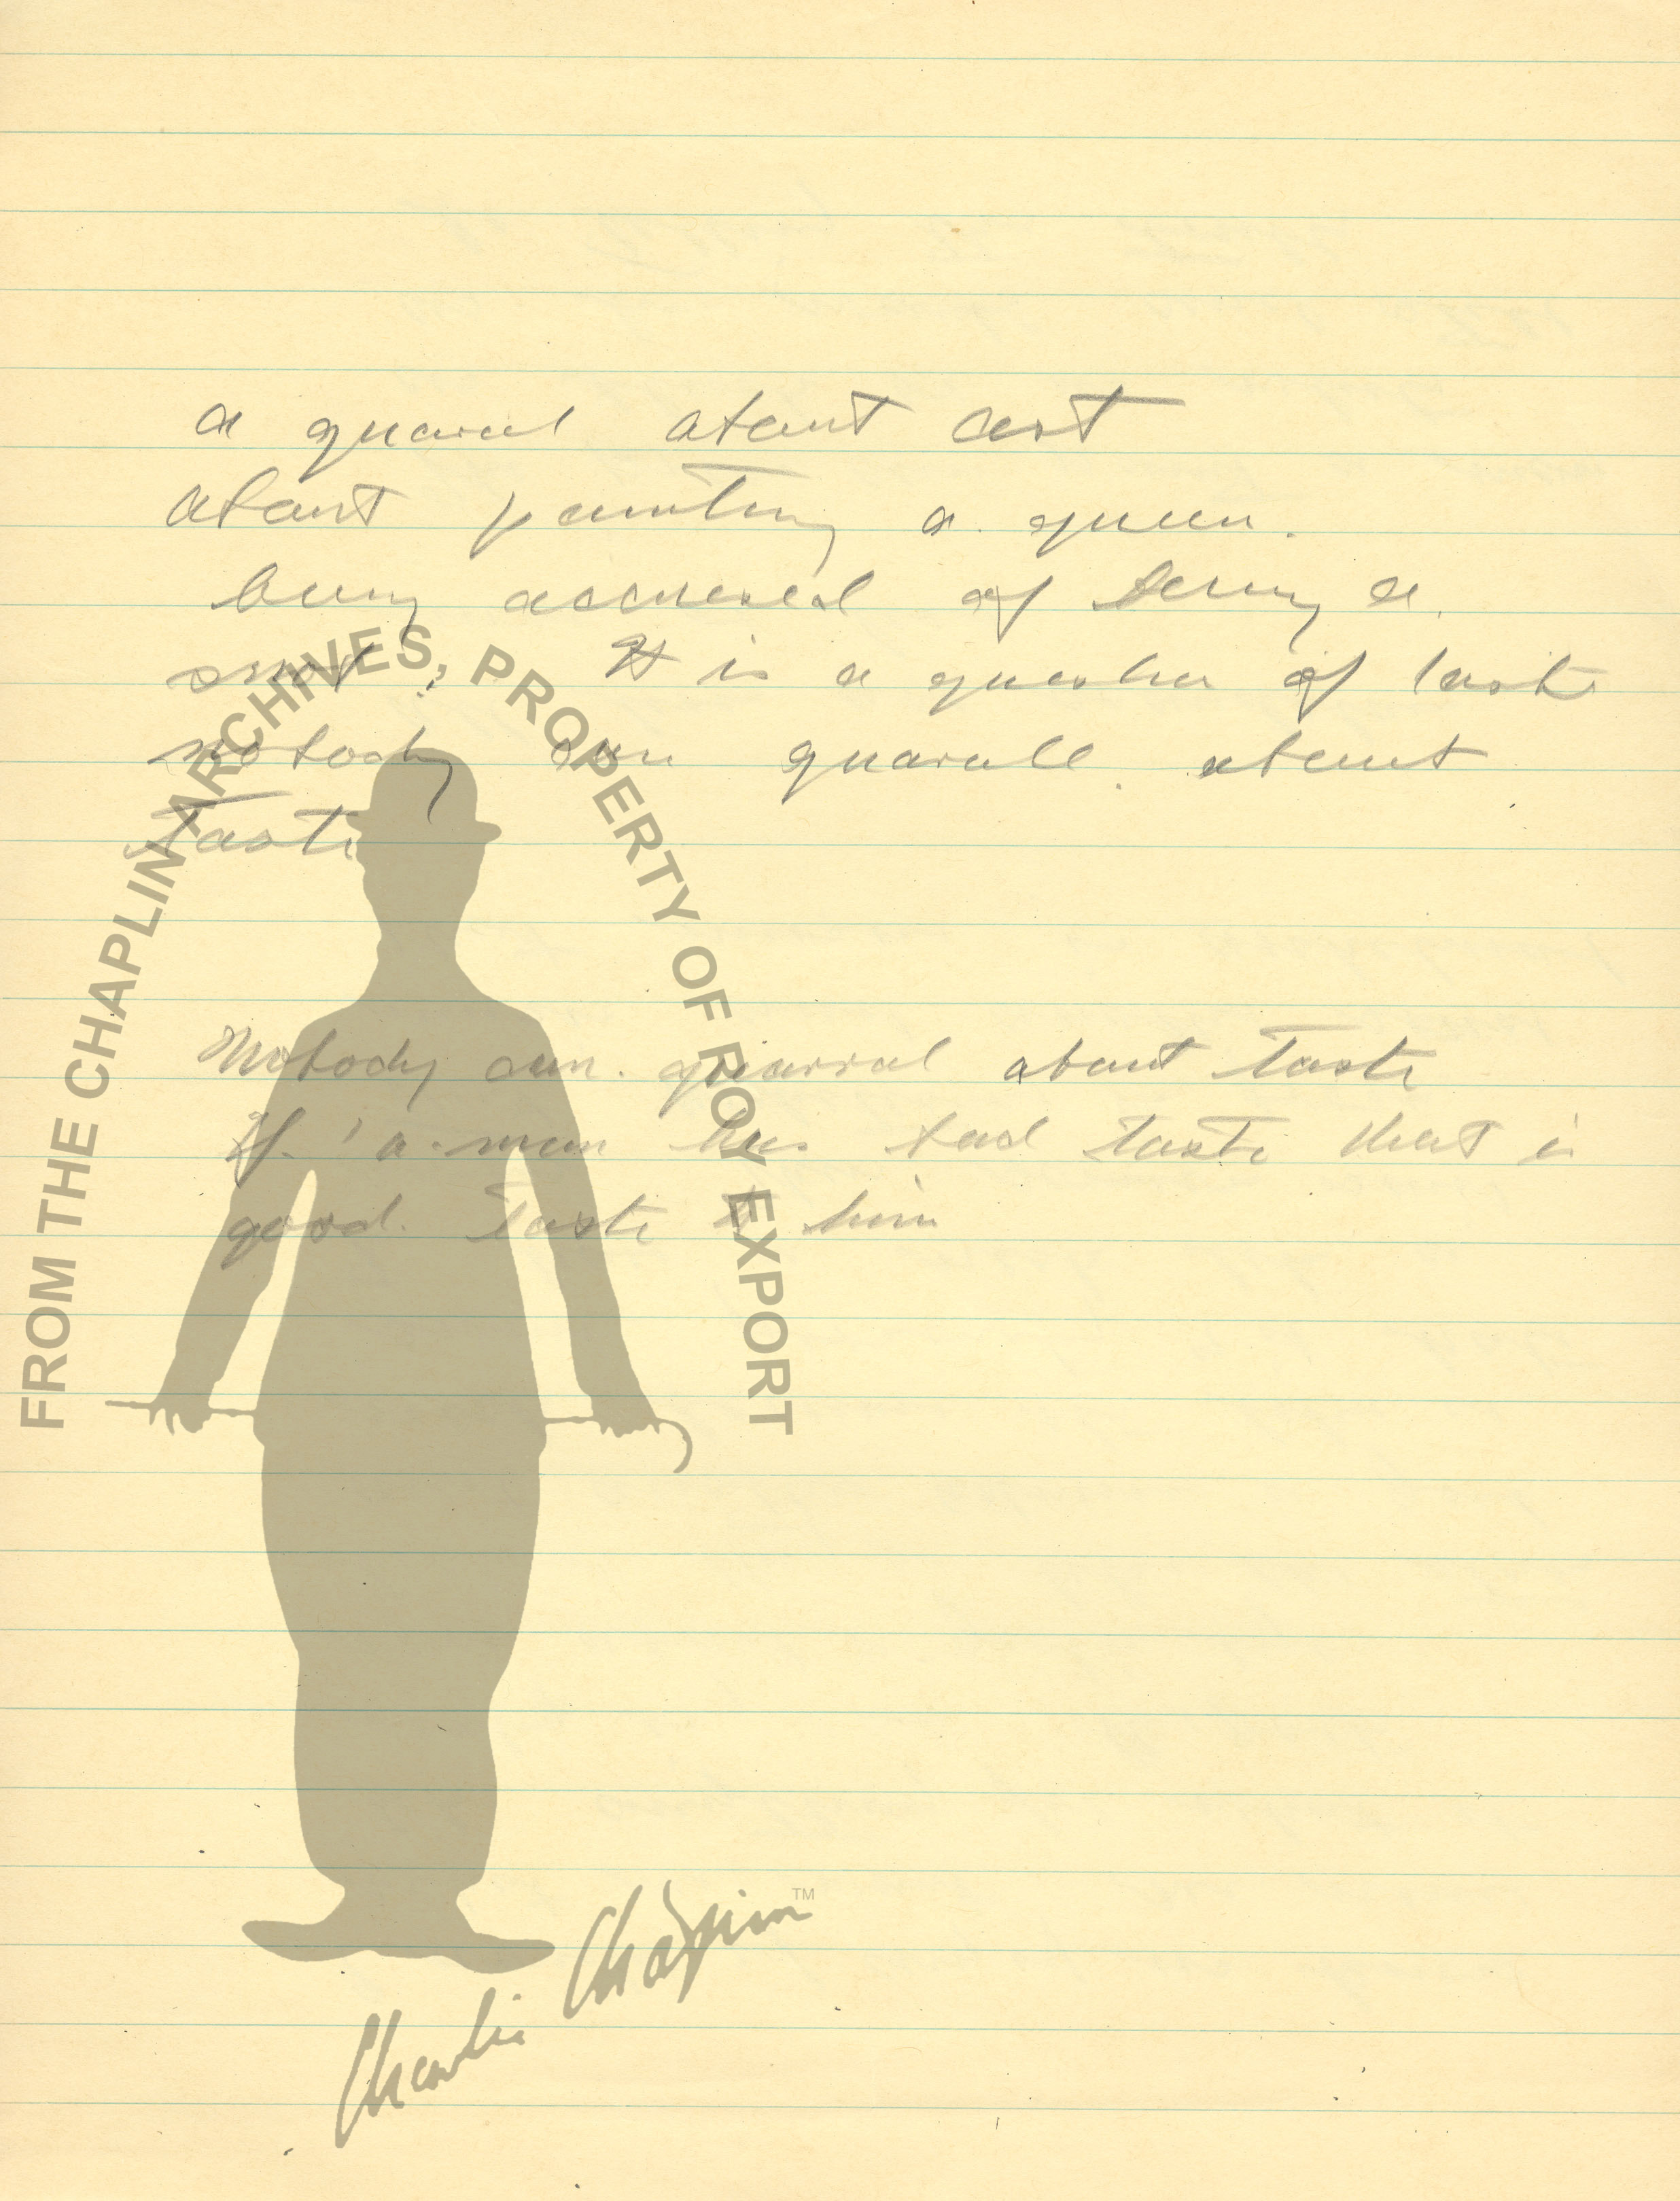 a quarrel about art
about painting a queen.
being accused of being a
snob. It is a question of taste
nobody can quarall about
taste
Nobody can. quarral about taste
If a man has bad taste that is
good. taste to him
FROM THE CHAPLIN ARCHIVES, PROPERTY OF ROY EXPORT
Charlie Chaplin TM